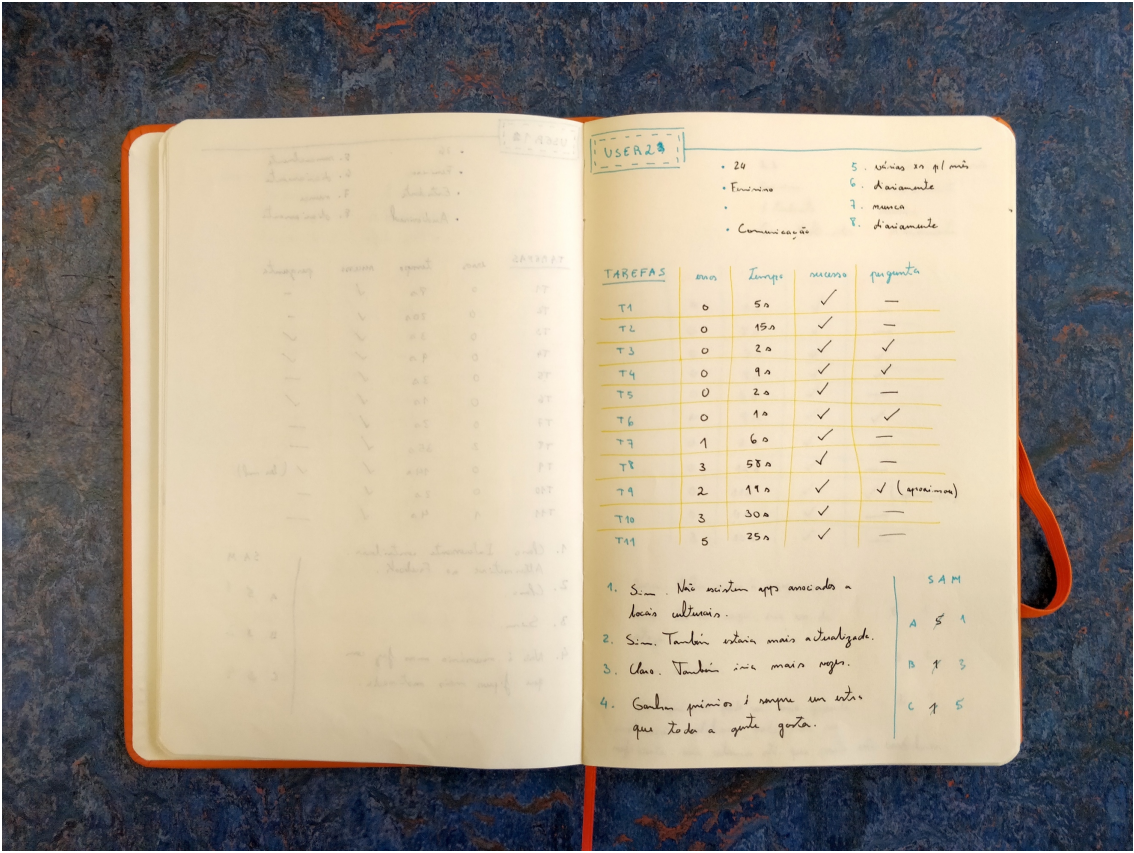 USER 2
• 24
• Feminino
•
• Comunicação
5. várias xs p/ mês
6. diariamente
7. nunca
8. diariamente
TAREFAS erros Tempo sucesso pergunta
T1 0 5s ✓ —
T2 0 15s ✓ —
T3 0 2s ✓ ✓
T4 0 9s ✓ ✓
T5 0 2s ✓ —
T6 0 1s ✓ ✓
T7 1 6s ✓ —
T8 3 58s ✓ —
T9 2 19s ✓ ✓ (aproximou)
T10 3 30s ✓ —
T11 5 25s ✓ —
1. Sim. Não existem apps associados a
locais culturais.
2. Sim. Também estaria mais actualizada.
3. Claro. Também iria mais vezes.
4. Ganhar prémios é sempre um extra
que toda a gente gosta.
SAM
A 1
B 3
C 5